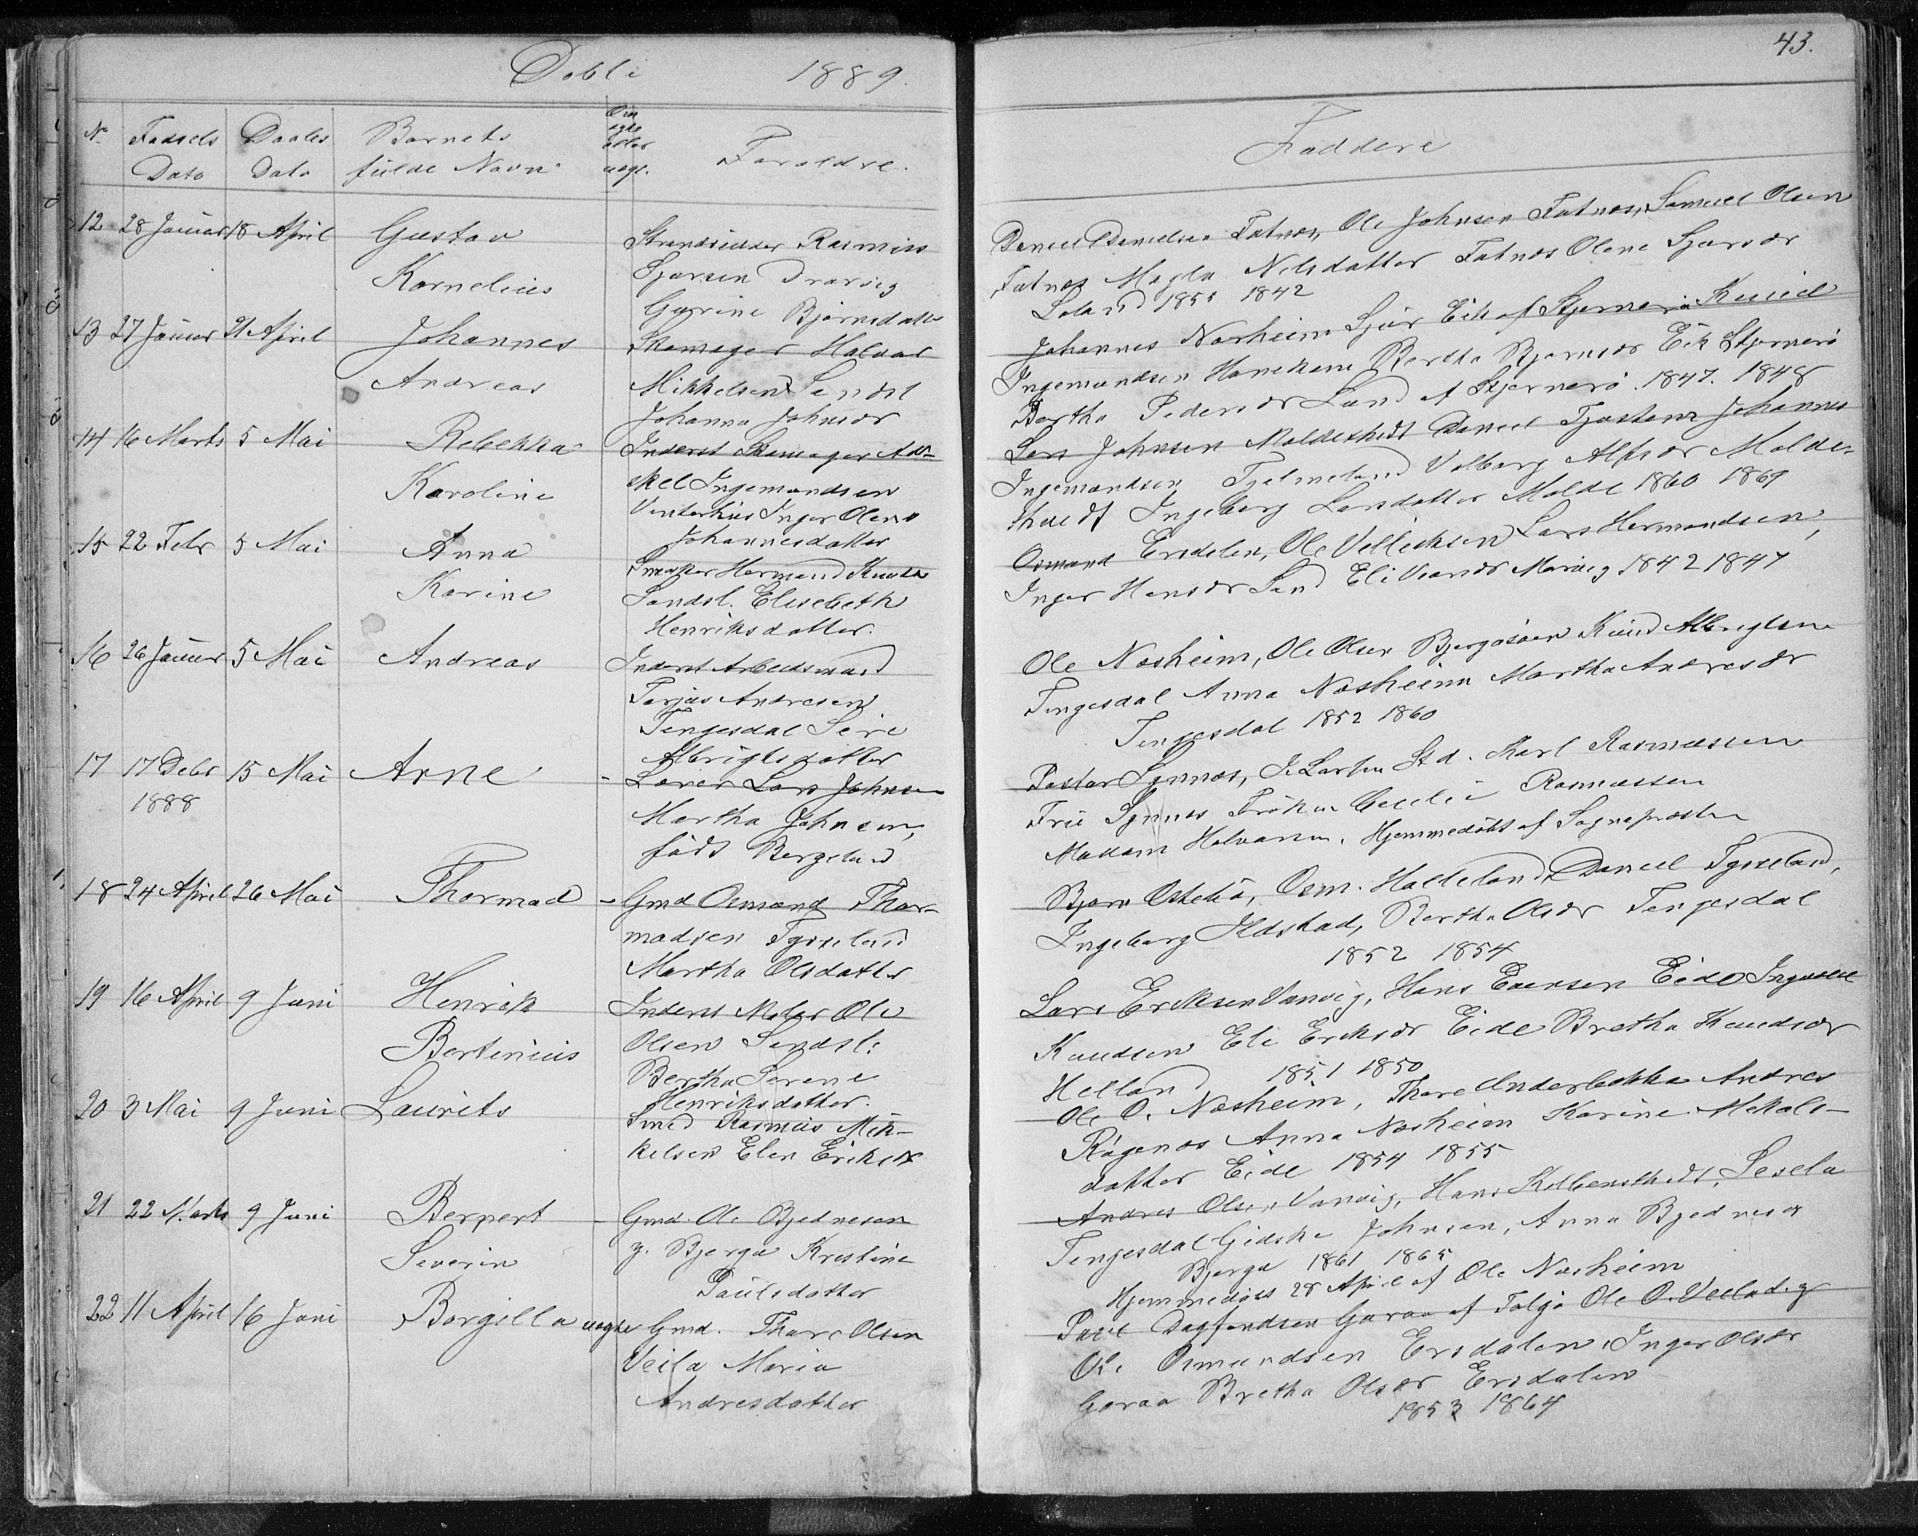 Døbte 1889.
43.
No Fødsels Dato Daabs Dato Barnets fulde Navn Om ægte eller uægt. Forældre.
Faddere
12 28 Januar 18 April Gustav Kornelius
Strandsidder Rasmus
Sjursen Drarvig
Gurine Bjørnsdatter
Daniel Danielsen Fatnæs, Ole Johnsen Fatnæs, Samuel Olsen
Fatnæs Magla Nelsdatter Fatnæs Olene Sjursdr
Løland 1855 1842
13 27 Januar 21 April Johannes Andreas
Skomager Halvor
Mikkelsen Sandsl
Johanna Johnsdr
Johannes Norheim Sjur Eik af Stjernerø Knud
Ingemundsen Hanekam Bertha Bjørnsdr Eik Stjernerø
Bertha Pedersdr Sand af Stjernerø. 1847. 1848
14 16 Marts 5 Mai Rebekka Karoline
Inderst Skomager Ad-
skel Ingemundsen
Vinterhus Inger Olene
Johannesdatter
Lars Johnsen Moldesthedt Daniel Tjostens Johannes
Ingemundsen Tjelmeland Valborg Alfsdr Molde-
sthedt Ingeborg Larsdatter Molde 1860 1869
15 22 Febr 5 Mai Anna Karine
Snedker Hermand Knuts
Sandsl. Elisebeth
Henriksdatter.
Osmund Ersdalen, Ole Velleiksen Lars Hermandsen,
Inger Hansdr Sand Eli Marvig 1842 1847
16 26 Januar 5 Mai Andreas
Inderst Arbeidsmand
Torjus Andresen
Tengesdal Siri
Albrigtsdatter
Ole Næsheim, Ole Olsen Bjergaasen Knud Albrigtsen
Tengesdal Anna Næsheim Martha Andresdr
Tengesdal 1852 1860
17 17 Debr 1888 15 Mai Arne -
Lærer Lars Johnsen
Martha Johnsen,
født Bergeland
Pastor Synnæs, J. Larsen Sd. Karl Rasmussen
Frue Synnæs Frøken Cecilie Rasmussen
Madam Halvorsen, Hjemmedøbt af Sognepræsten
18 24 April 26 Mai Thormod -
Gmd Osmund Thor-
modsen Tysseland
Martha Olsdatter
Bjørn Østebø, Osm. Halleland, Daniel Tysseland,
Ingeborg Ilstad, Bertha Olsdr Tengesdal
1852 1854
19 16 April 9 Juni Henrik Bertinius
Inderst Maler Ole
Olsen Sandsl.
Bertha Serene
Henriksdatter.
Lars Eriksen Vanvig, Hans Evensen Eide Ingvald
Knudsen Eli Eriksdr Eide Bretha Knudsdr
Helland 1851 1850
20 3 Mai 9 Juni Laurits
Smed Rasmus Mik-
kelsen Elen Eriksdr
Ole O. Næsheim, Thore Underbakke Andres
Røgenæs Anna Næsheim Karine Mikals-
datter Eide 1854 1855
21 22 Marts 9 Juni Berpert Severin -
Gmd Ole Bjødnesen
y. Bjerga Kristine
Paulsdatter
Andres Olsen Vanvig, Hans Kolbensthedt, Sesela
Tengesdal Gidske Johnsen, Anna Bjødnesdr
Bjerga 1861 1865
Hjemmedøbt 28 April af Ole Næsheim
22 11 April 16 Juni Borgilla uægte
Gmd. Thore Olsen
Veila Maria
Andresdatter
Povel Dagfendsen Garaa af Talgø Ole O. Veila d.y
Ole Osmundsen Ersdalen, Inger Olsdr
Garaa Bretha Olsdr Ersdalen
1853 1864